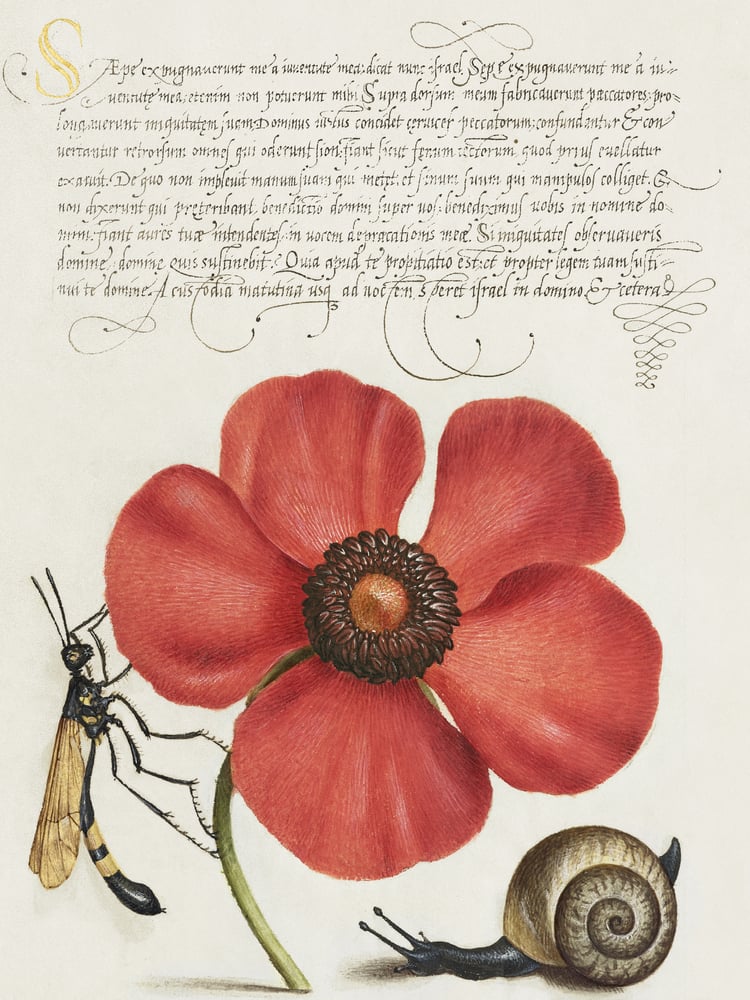 Sæpe expugnaverunt me a iuventute mea: dicat nunc israel. Sepe expugnaverunt me a iu-
ventute mea: etenim non potuerunt mihi. Supra dorsum meum fabricaverunt pæccatores: pro-
longaverunt iniquitatem suam. Dominus iustus concidet cervices peccatorum: confundantur & con
vertantur retrorsum omnes qui oderunt sion: fiant sicut fenum tectorum quod prius evellatur
exaruit. De quo non implevit manum suam qui metet: et sinum suum qui manipulos colliget. &
non dixerunt qui preteribant, benedictio domini super vos: benediximus vobis in nomine do-
mini: fiant aures tuæ intendentes: in vocem depracationis meæ. Si iniquitates observaveris
domine: domine quis sustinebit. Quia apud te propitiatio est: et propter legem tuam susti-
nui te domine. A custodia matutina usq ad noctem, speret israel in domino. & cetera.